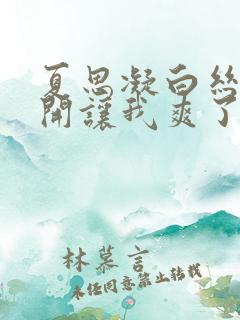 夏思凝白絲
開讓我爽了
林慕言
未经同意禁止转载